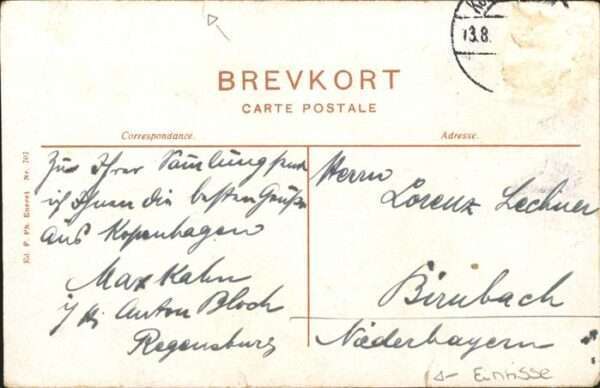 13.8.
BREVKORT
CARTE POSTALE
Correspondance.
Adresse.
Zu Ihrer Samlung send
ich Ihnen die besten Grüße
aus Kopenhagen
Max Kahn
Anton Bloch
Regensburg
Herrn
Lorenz Lechner
Birnbach
Niederbayern
Einrisse
Ed. F. Ph. Nr. 701